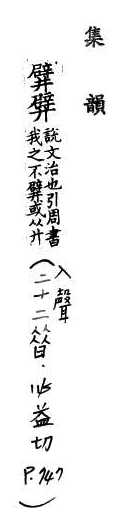 集韻
說文治也引周書
我之不或从廾
(入聲
二十二㫺·必益切 P.747)